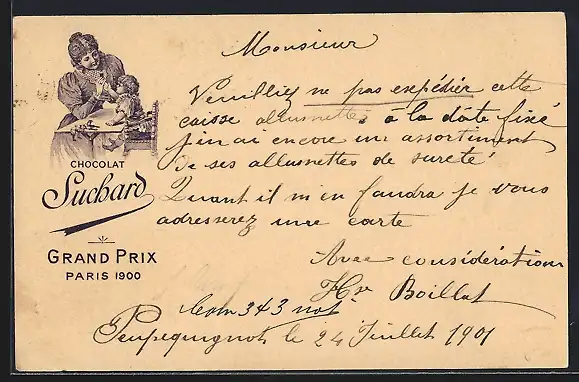 Monsieur
Veuilliez ne pas expédier cette
caisse allumettes à la date fixé
j'en ai encore un assortiment
de ses allumettes de sureté
Quant il m'en faudra je vous
adresserez une carte
Avec considération
Hri Boillat
CHOCOLAT
Suchard
GRAND PRIX
PARIS 1900
com 343 not
le 24 Juillet 1901